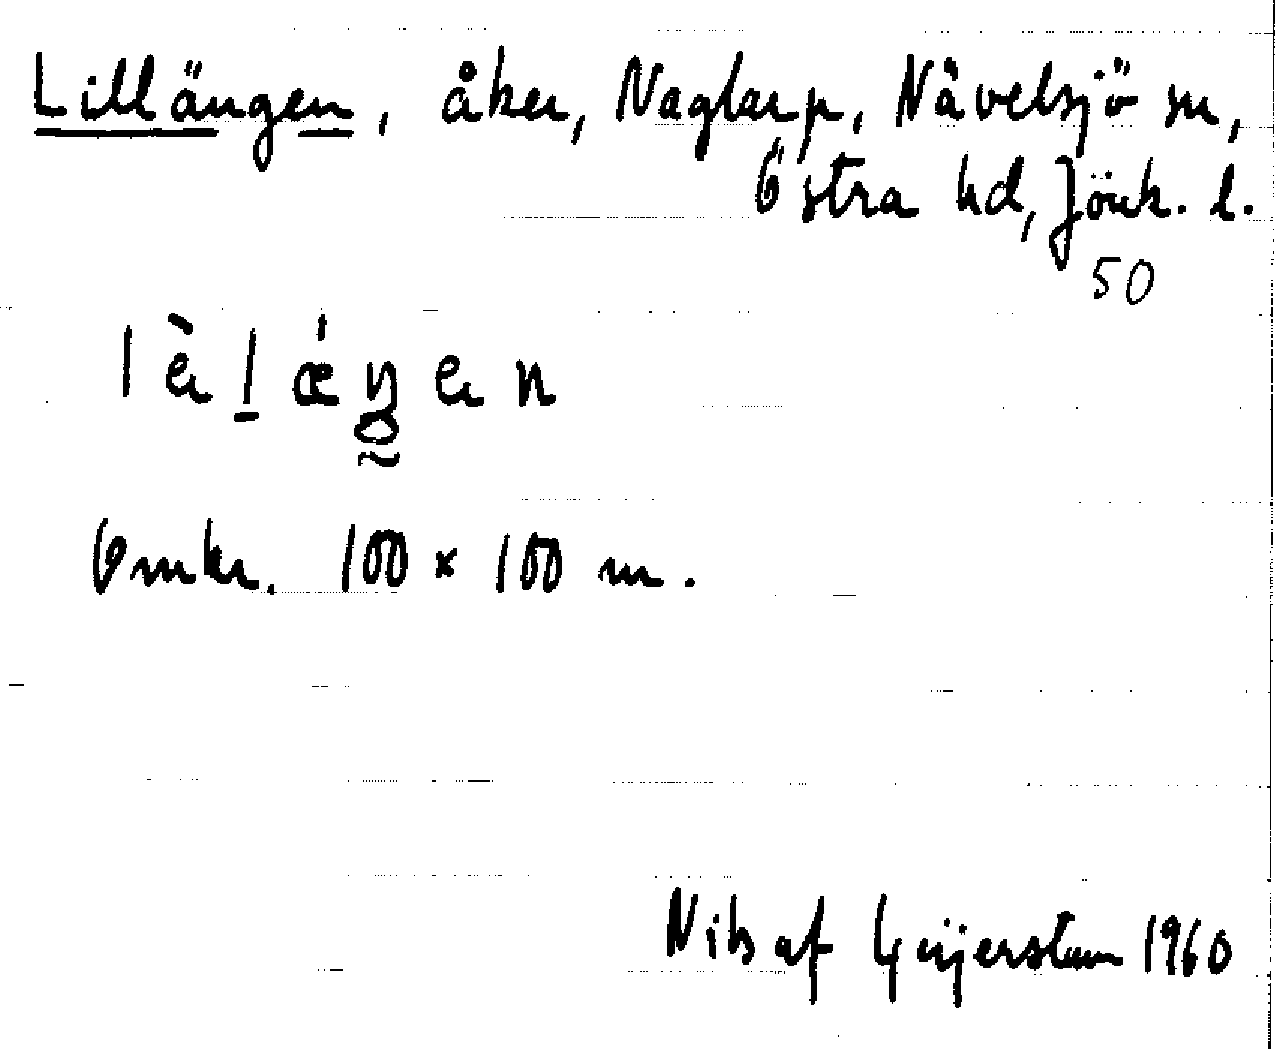 Lillängen, åker, Naglarp, Nävelsjö sn,
Östra hd, Jönk. l.
50
Omkr. 100 × 100 m.
Nils af Geijerstam 1960